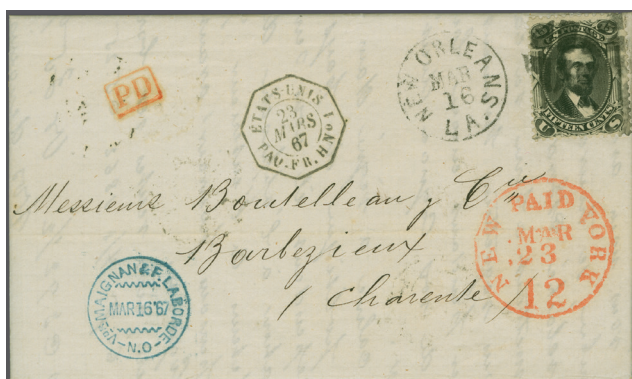 PD
ÉTATS-UNIS
23
MARS
67
PAQ. FR. H No 1
NEW ORLEANS
MAR
16
LA.
U.S. POSTAGE
FIFTEEN CENTS
U S
Messieurs Boutelleau y Cie
Barbezieux
(Charente)
NEW PAID YORK
MAR
23
12
Vor MAIGNAN & F. LABORDE
MAR 16 '67
N.O